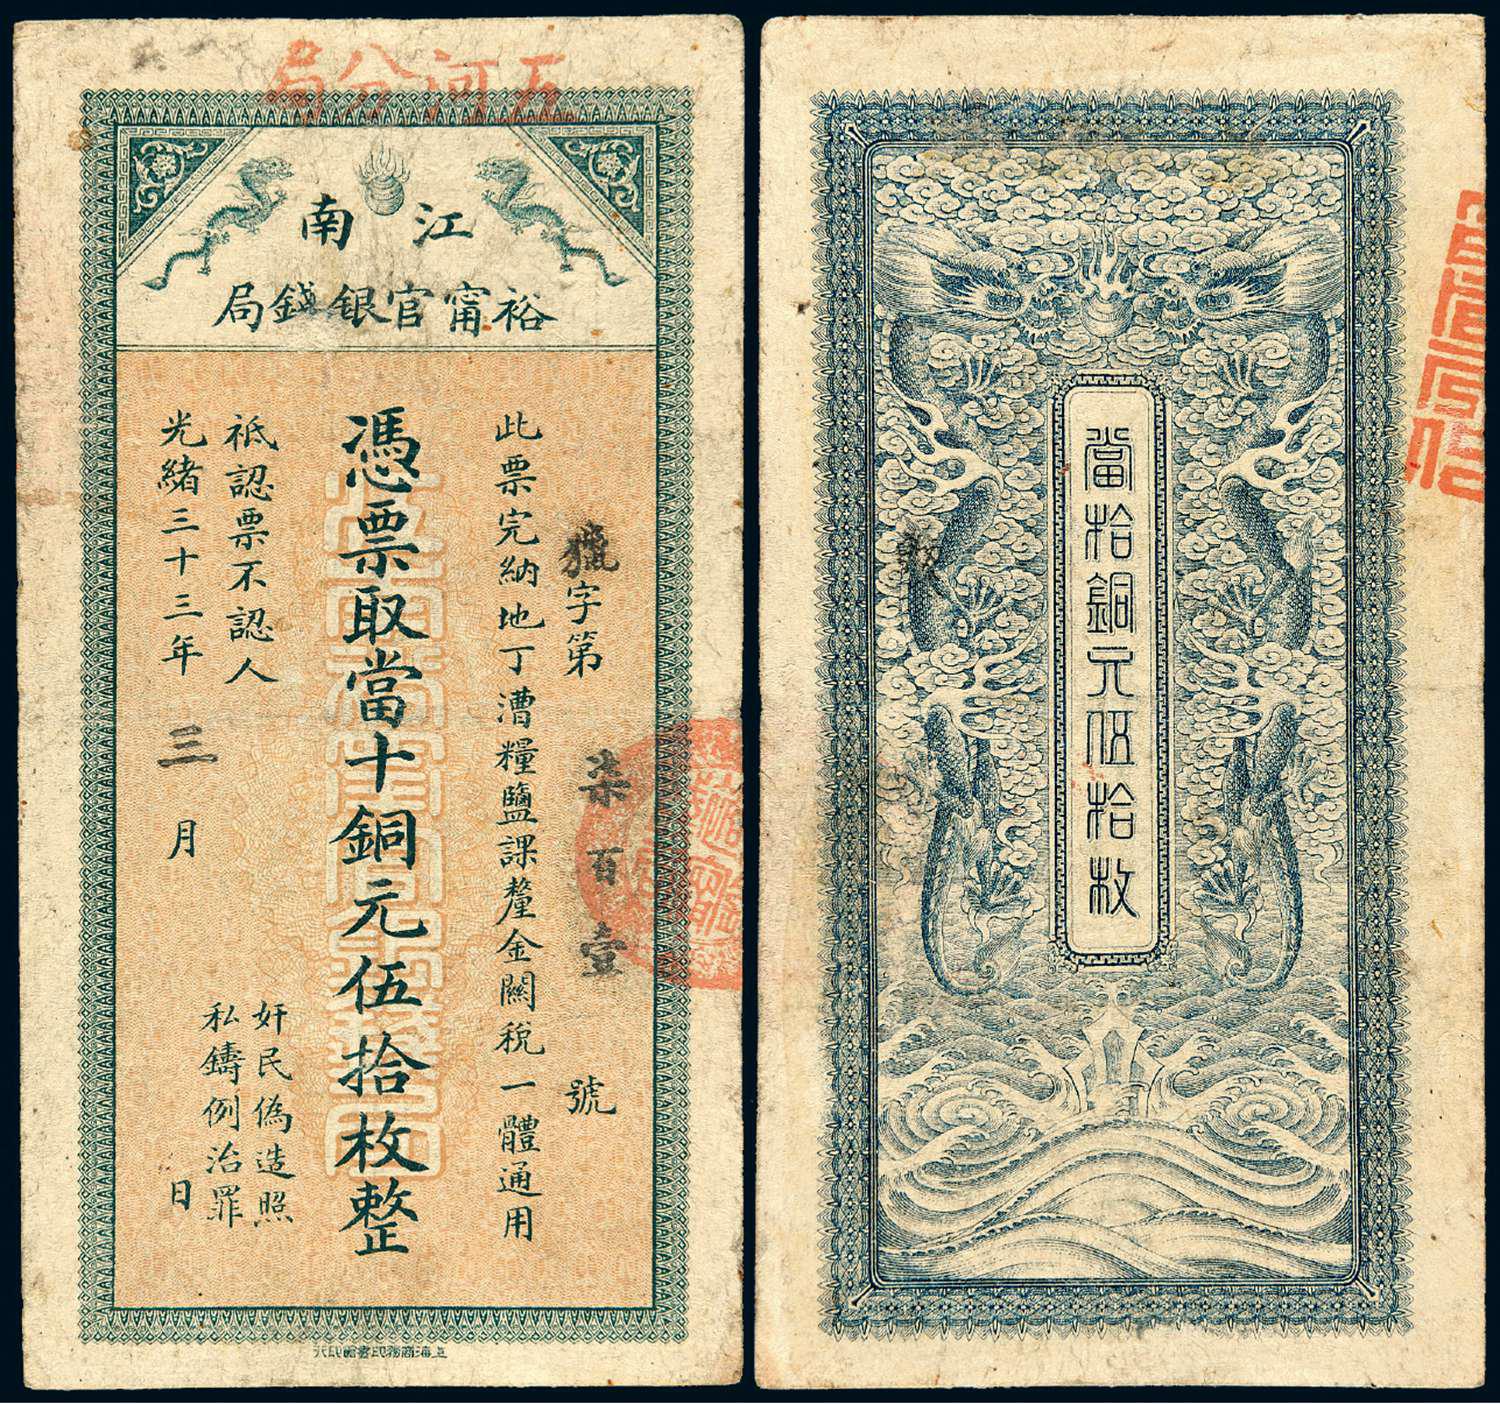 五河分局
江南
裕甯官銀錢局
獵字第柒百壹號
此票完納地丁漕糧鹽課釐金關稅一體通用
憑票取當十銅元伍拾枚整
祇認票不認人
奸民偽造照
私鑄例治罪
光緒三十三年三月日
上海商務印書館印行
當拾銅元伍拾枚